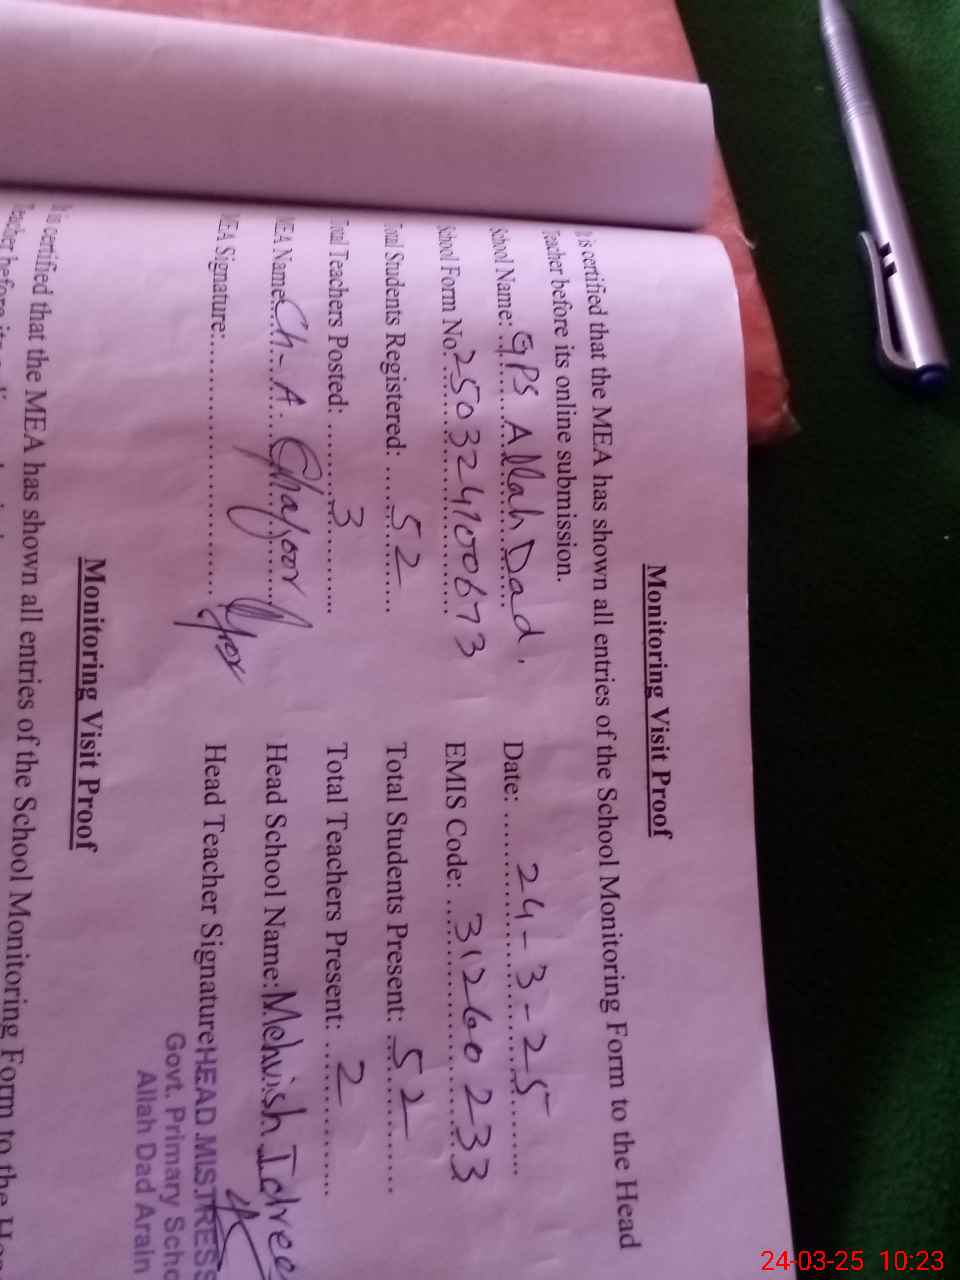 Monitoring Visit Proof
It is certified that the MEA has shown all entries of the School Monitoring Form to the Head
Teacher before its online submission.
School Name: GPS Allah Dad, Date: 24-3-25
School Form No: 25032410067 3 EMIS Code: 31260233
Total Students Registered: 52 Total Students Present: 52
Total Teachers Posted: 3 Total Teachers Present: 2
MEA Name: Ch-A. Ghafoor Head School Name: Mehwish Idrees
MEA Signature: Head Teacher Signature
HEAD MISTRESS
Govt. Primary Scho
Allah Dad Arain
Monitoring Visit Proof
It is certified that the MEA has shown all entries of the School Monitoring Form to the
Teacher before its
24-03-25 10:23